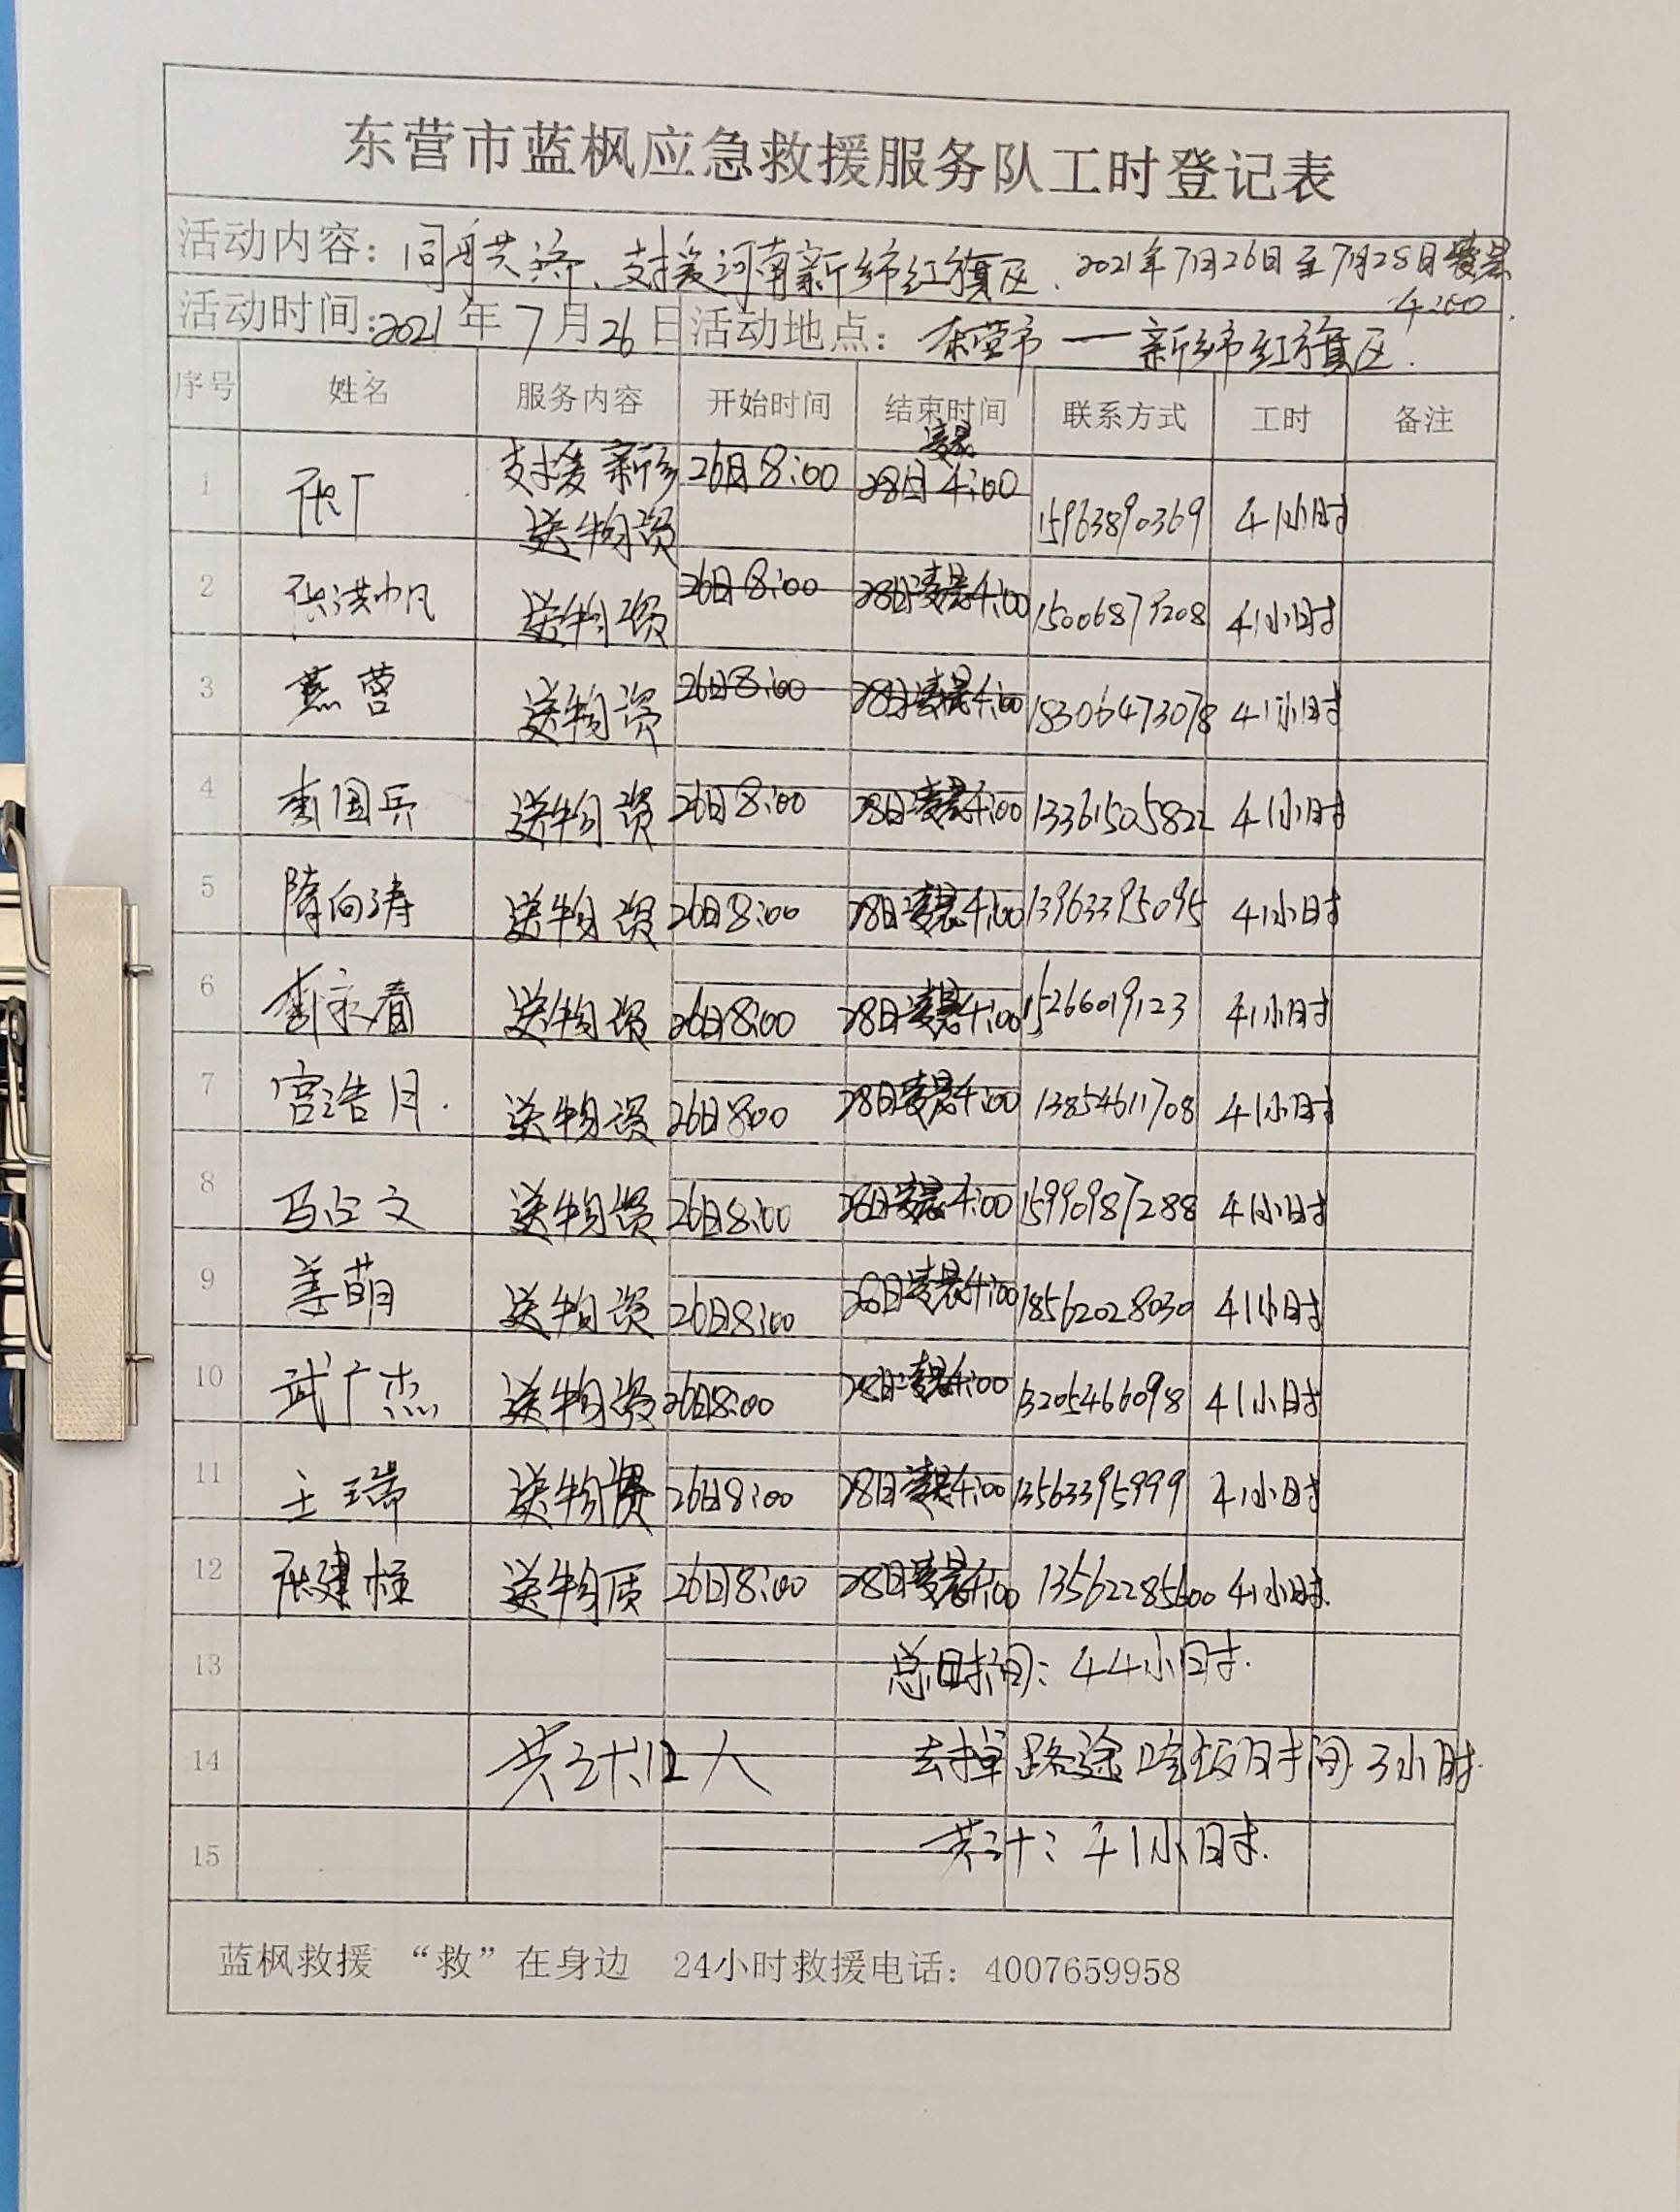 东营市蓝枫应急救援服务队工时登记表
活动内容：同舟共济、支援河南新乡市红旗区. 2021年7月26日至7月28日凌晨
4:00.
活动时间：2021年7月26日 活动地点：东营市一新乡市红旗区.
序号 姓名 服务内容 开始时间 结束时间 联系方式 工时 备注
1 张广 支援新乡送物资 26日8:00 28日凌晨4:00 15963890369 41小时
2 张洪帆 送物资 26日8:00 28日凌晨4:00 41小时
3 燕营 送物资 26日8:00 28日凌晨4:00 18306473078 41小时
4 李国兵 送物资 26日8:00 28日凌晨4:00 13361505822 41小时
5 隋向涛 送物资 26日8:00 28日凌晨4:00 13963395095 41小时
6 李永春 送物资 26日8:00 28日凌晨4:00 15266019123 41小时
7 宫浩月. 送物资 26日8:00 28日凌晨4:00 13854611708 41小时
8 马占文 送物资 26日8:00 28日凌晨4:00 15990987288 41小时
9 姜萌 送物资 26日8:00 28日凌晨4:00 18562028030 41小时
10 武广杰 送物资 26日8:00 28日凌晨4:00 13205466098 41小时
11 王瑞 送物资 26日8:00 28日凌晨4:00 13563395999 41小时
12 张建恒 送物质 26日8:00 28日凌晨4:00 13562285600 41小时.
13 总时间：44小时.
14 共计12人 去掉路途吃饭时间3小时.
15 共计：41小时.
蓝枫救援 “救”在身边 24小时救援电话：4007659958